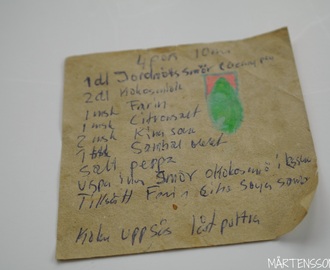 4 pon 10 min
1 dl Jordnötssmör
2 dl Kokosmjölk
1 msk Farin
1 msk Citronsaft
2 msk Kim soya
1 tsk Sambal oelet
Salt peppa
Vispa Smör o Kokosmö
Tillsätt Farin Citr Soya Sambal
Koka upp sås låt puttra
MÅRTENSSO